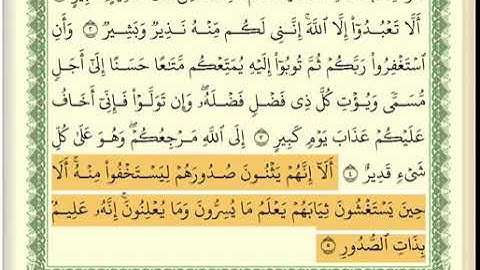 أَلَّا تَعْبُدُوٓا۟ إِلَّا ٱللَّهَ ۚ إِنَّنِى لَكُم مِّنْهُ نَذِيرٌ وَبَشِيرٌ ٢ وَأَنِ
ٱسْتَغْفِرُوا۟ رَبَّكُمْ ثُمَّ تُوبُوٓا۟ إِلَيْهِ يُمَتِّعْكُم مَّتَٰعًا حَسَنًا إِلَىٰٓ أَجَلٍ
مُّسَمًّى وَيُؤْتِ كُلَّ ذِى فَضْلٍ فَضْلَهُۥ ۖ وَإِن تَوَلَّوْا۟ فَإِنِّىٓ أَخَافُ
عَلَيْكُمْ عَذَابَ يَوْمٍ كَبِيرٍ ٣ إِلَى ٱللَّهِ مَرْجِعُكُمْ ۖ وَهُوَ عَلَىٰ كُلِّ
شَىْءٍ قَدِيرٌ ٤ أَلَآ إِنَّهُمْ يَثْنُونَ صُدُورَهُمْ لِيَسْتَخْفُوا۟ مِنْهُ ۚ أَلَا
حِينَ يَسْتَغْشُونَ ثِيَابَهُمْ يَعْلَمُ مَا يُسِرُّونَ وَمَا يُعْلِنُونَ ۚ إِنَّهُۥ عَلِيمٌۢ
بِذَاتِ ٱلصُّدُورِ ٥